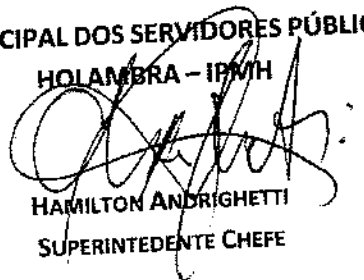 CIPAL DOS SERVIDORES PÚBLIC
HOLAMBRA – IPMH
HAMILTON ANDRIGHETTI
SUPERINTEDENTE CHEFE